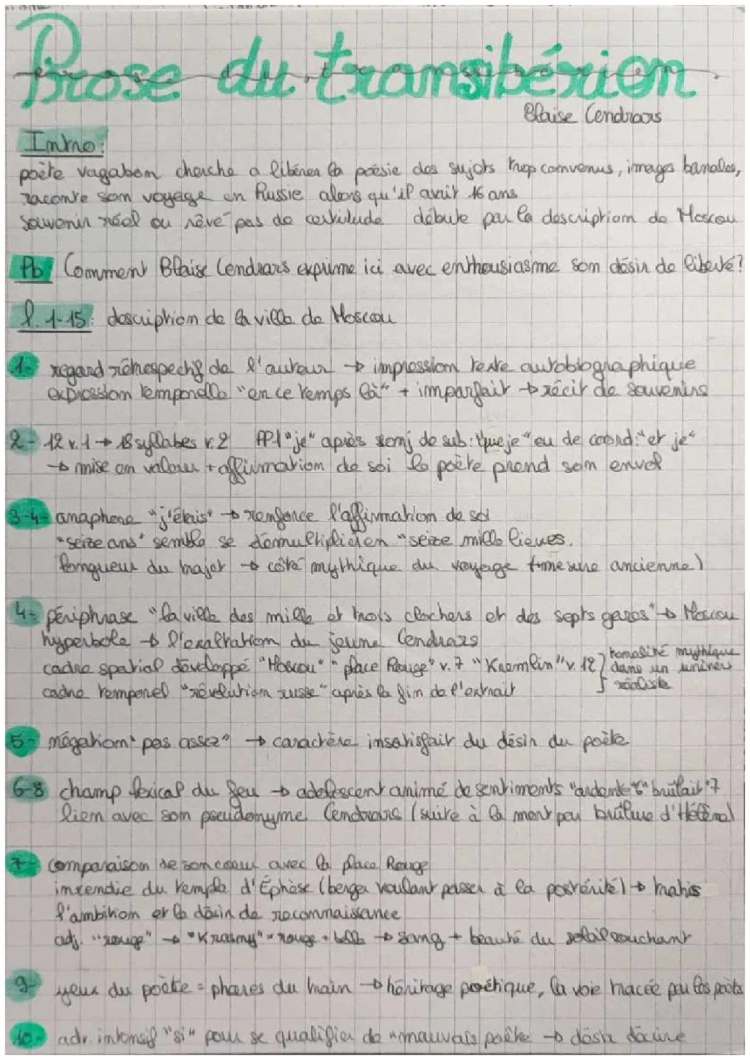 Prose du transibérien
Blaise Cendrars
Intro:
poète vagabon cherche a libérer la poésie des sujets trop convenus, images banales,
raconte son voyage en Russie alors qu'il avait 16 ans
souvenir réel ou rêvé pas de certitude débute par la description de Moscou
Pb Comment Blaise Cendrars exprime ici avec enthousiasme son désir de liberté?
l. 1-15: description de la ville de Moscou
1- regard rétrospectif de l'auteur → impression texte autobiographique
expression temporelle "en ce temps là" + imparfait → récit de souvenirs
2- 12 v.1 → 18 syllabes v.2 PP1 "je" après conj de sub: "que je" ou de coord: "et je"
→ mise en valeur + affirmation de soi le poète prend son envol
3-4- anaphore "j'étais" → renforce l'affirmation de soi
"seize ans" semble se démultiplier en "seize mille lieues.
longueur du trajet → côté mythique du voyage (mesure ancienne)
4- périphrase "la ville des mille et trois clochers et des septs gares" → Moscou
hyperbole → l'exaltation du jeune Cendrars
cadre spatial développé "Moscou" "place Rouge" v.7 "Kremlin" v.12
cadre temporel "révolution russe" après la fin de l'extrait
tonalité mythique
dans un univers
réaliste
5- négation "pas assez" → caractère insatisfait du désir du poète
6-8 champ lexical du feu → adolescent animé de sentiments "ardente" 6 "brûlait" 7
lien avec son pseudonyme Cendrars (suite à la mort par brûlure d'Hélène)
7- comparaison de son coeur avec la place Rouge
incendie du temple d'Éphèse (berger voulant passer à la postérité) → trahis
l'ambition et le désir de reconnaissance
adj. "rouge" → "Krasnyi" = rouge + belle → sang + beauté du soleil couchant
9- yeux du poète = phares du train → héritage poétique, la voie tracée par les poètes
10- adv. intensif "si" pour se qualifier de "mauvais poète → désir d'écrire